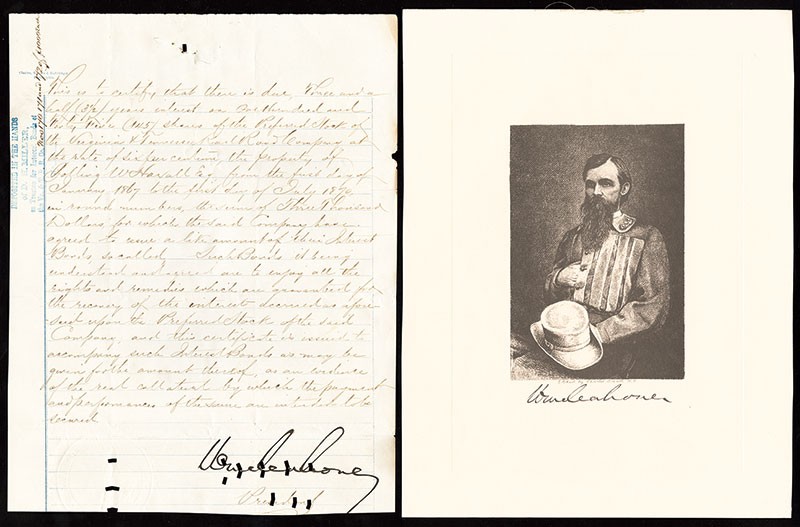 This is to certify that there is due, Three and a
half (3½) years interest on One Hundred and
Forty Five (145) shares of the Preferred Stock of
the Virginia & Tennessee Rail Road Company at
the rate of six per centum, the property of
W Haxall Esq. from the first day of
January 1867 to the first day of July 1870
in round numbers, the sum of Three Thousand
Dollars for which the said Company have
agreed to issue a like amount of their Interest
Bonds, so called. Such Bonds it being
understood and agreed are to enjoy all the
rights and remedies which are guaranteed for
the recovery of the interest accrued as afore-
said upon the Preferred Stock of the said
Company, and this certificate is issued to
accompany such Interest Bonds as may be
given for the amount thereof, as an evidence
of the real collateral by which the payment
and performance of the same are intended to be
secured
Wm Mahone
President
DEPOSITED IN THE HANDS
of D. S. MILLER,
as Trustee for Interest Bonds of
Wm Mahone